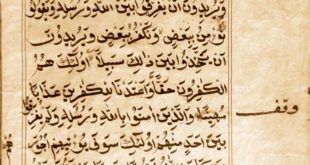 وَيُرِيدُونَ أَن يُفَرِّقُوا بَيْنَ اللَّهِ وَرُسُلِهِ وَيَقُولُونَ
نُؤْمِنُ بِبَعْضٍ وَنَكْفُرُ بِبَعْضٍ وَيُرِيدُونَ
أَن يَتَّخِذُوا بَيْنَ ذَٰلِكَ سَبِيلًا أُولَٰئِكَ هُمُ
الْكَٰفِرُونَ حَقًّا وَأَعْتَدْنَا لِلْكَٰفِرِينَ عَذَابًا
مُهِينًا وَالَّذِينَ آمَنُوا بِاللَّهِ وَرُسُلِهِ وَلَمْ يُفَرِّقُوا
بَيْنَ أَحَدٍ مِنْهُمْ أُولَٰئِكَ سَوْفَ يُؤْتِيهِمْ
وقف